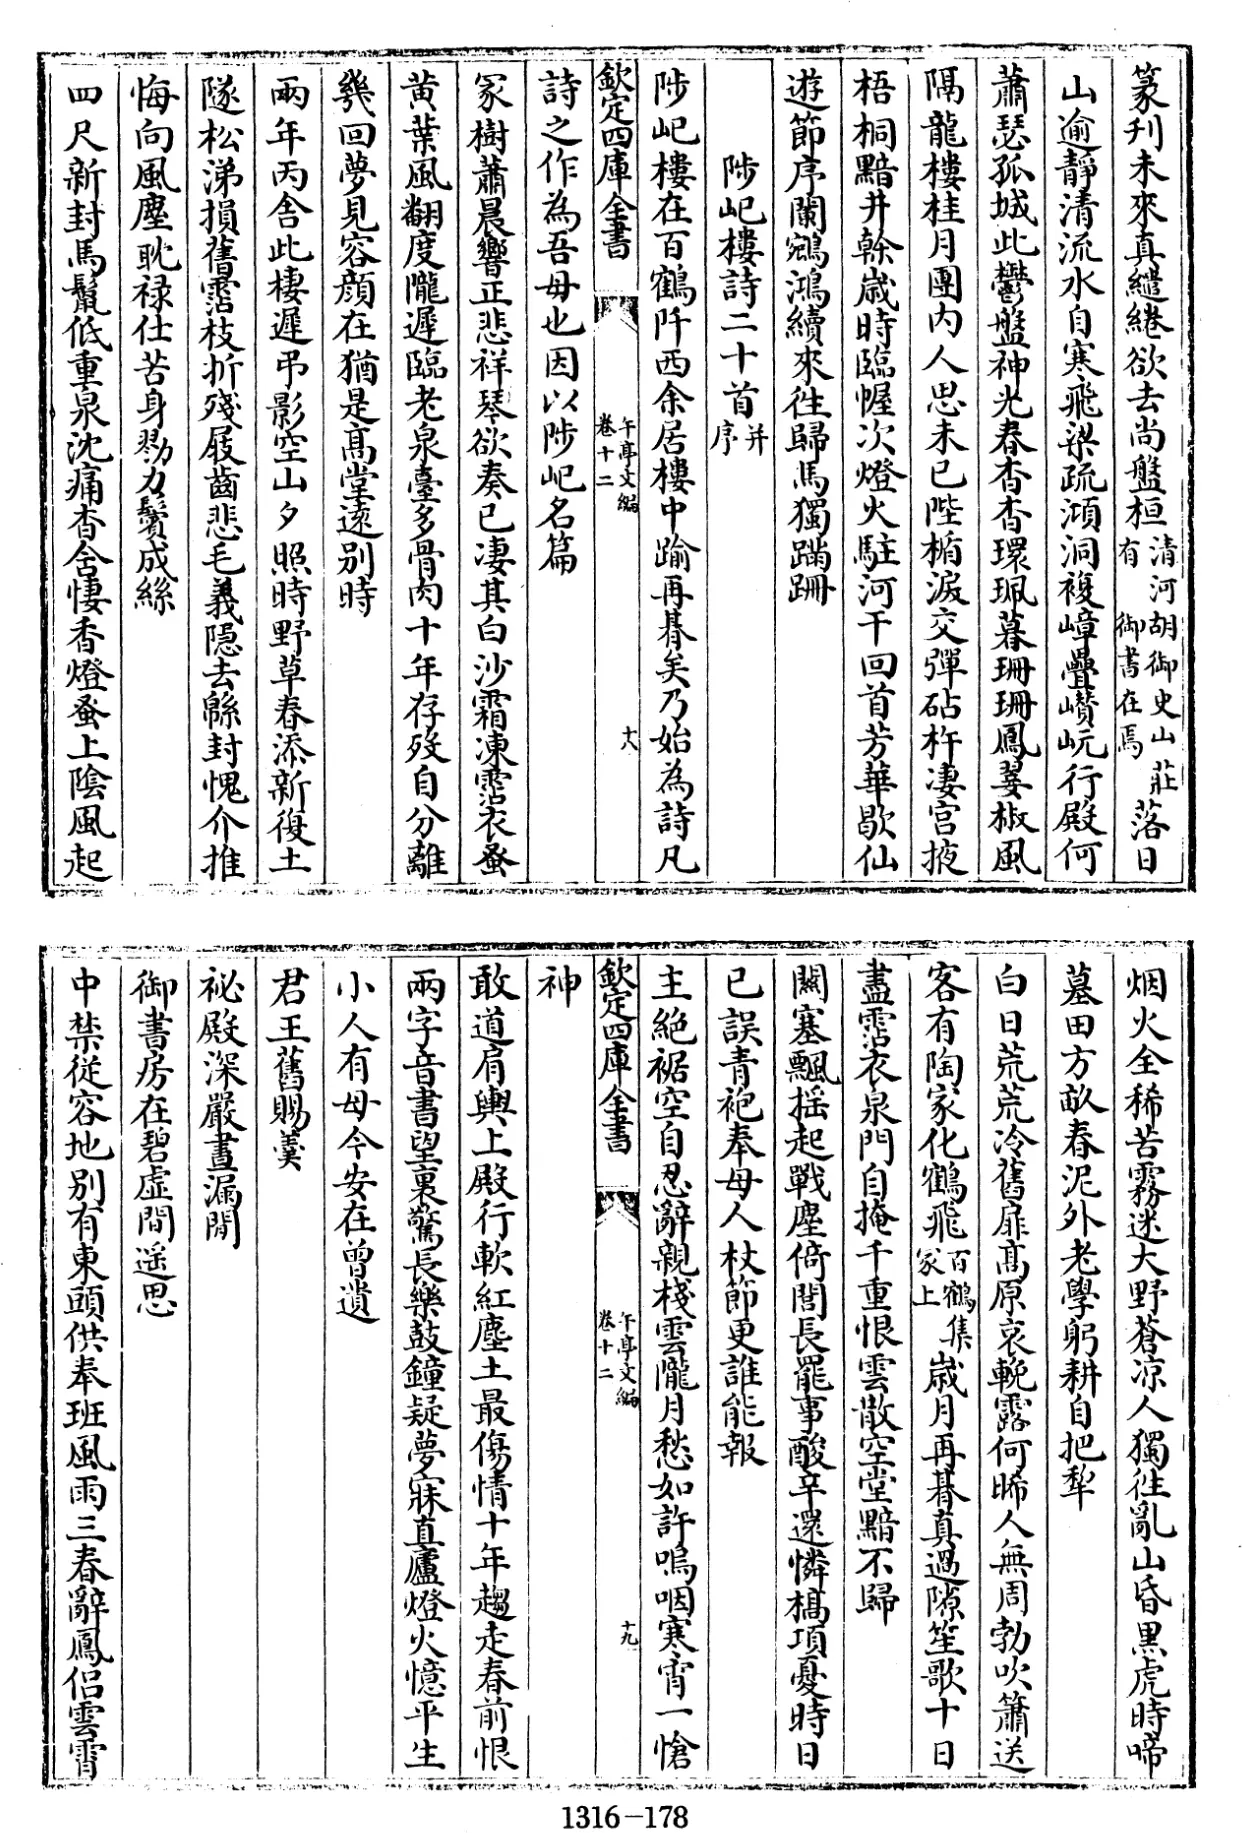 篆刋未來真繾綣欲去尚盤桓清河胡御史山莊有 御書在焉落日
山逾靜清流水自寒飛梁疏澒洞複嶂疊巑岏行殿何
蕭瑟孤城此鬱盤神光春杳杳環珮暮珊珊鳳翣椒風
隔龍樓桂月團内人思未已陛楯淚交彈砧杵凄宫掖
梧桐黯井榦嵗時臨幄次燈火駐河干回首芳華歇仙
遊節序闌鵷鴻續來往歸馬獨蹣跚
陟屺樓詩二十首并序
陟屺樓在百鶴阡西余居樓中踰再朞矣乃始為詩凡
欽定四庫全書
午亭文編
卷十二
十八
詩之作為吾母也因以陟屺名篇
冢樹蕭晨響正悲祥琴欲奏已凄其白沙霜凍霑衣蚤
黄葉風翻度隴遲臨老泉臺多骨肉十年存殁自分離
幾回夢見容顔在猶是髙堂遠别時
兩年丙舍此棲遲弔影空山夕照時野草春添新復土
隧松涕損舊霑枝折殘屐齒悲毛義隱去緜封愧介推
悔向風塵耽禄仕苦身勠力鬢成絲
四尺新封馬鬛低重泉沈痛杳含悽香燈蚤上隂風起
烟火全稀苦霧迷大野蒼凉人獨往亂山昏黒虎時啼
墓田方畝春泥外老學躬耕自把犂
白日荒荒冷舊扉髙原哀輓露何晞人無周勃吹簫送
客有陶家化鶴飛百鶴集冢上嵗月再朞真過隙笙歌十日
盡霑衣泉門自掩千重恨雲散空堂黯不歸
闗塞飄摇起戰塵倚閭長罷事酸辛還憐槁項憂時日
已誤青袍奉母人杖節更誰能報
主絶裾空自忍辭親棧雲隴月愁如許嗚咽寒宵一愴
欽定四庫全書
午亭文編
卷十二
十九
神
敢道肩輿上殿行軟紅塵土最傷情十年趨走春前恨
兩字音書望裏驚長樂鼓鐘疑夢寐直廬燈火憶平生
小人有母今安在曾遺
君王舊賜羮
祕殿深嚴晝漏閒
御書房在碧虚間遥思
中禁從容地别有東頭供奉班風雨三春辭鳳侣雲霄
1316-178